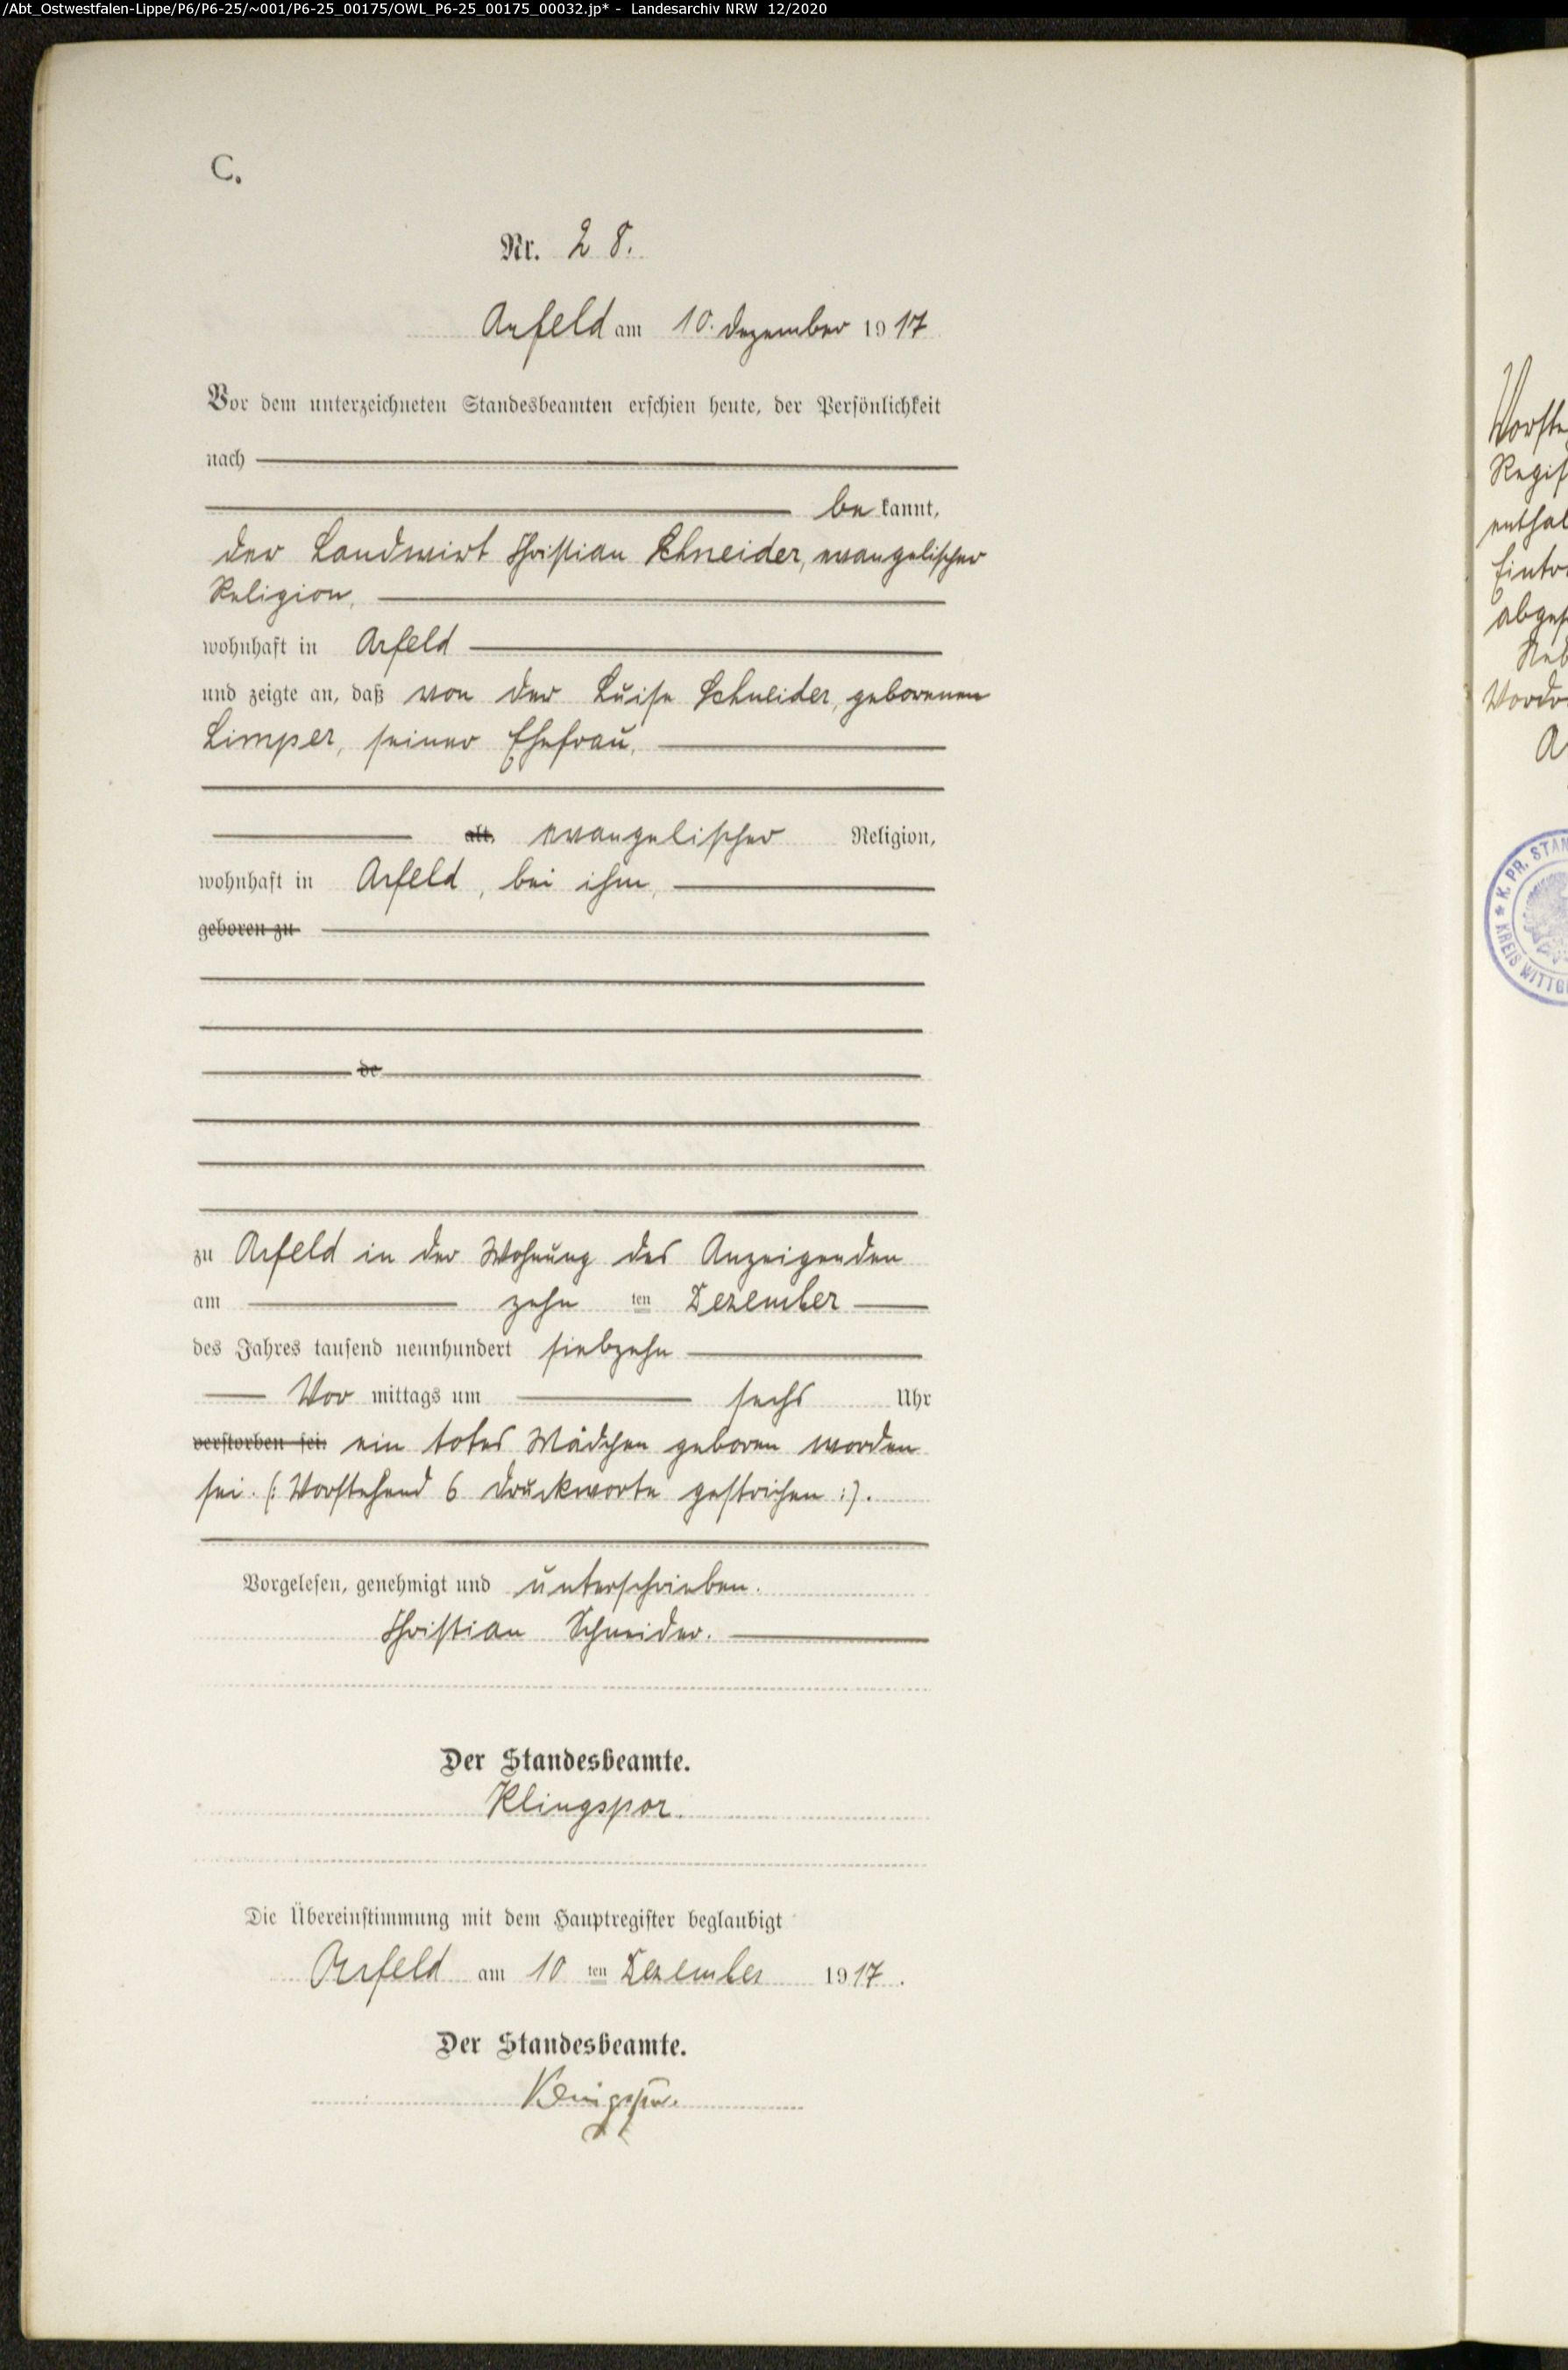 /Abt_Ostwestfalen-Lippe/P6/P6-25/~001/P6-25_00175/OWL_P6-25_00175_00032.jp* - Landesarchiv NRW 12/2020
C.
Nr. 28.
Arfeld am 10. Dezember 1917
Vor dem unterzeichneten Standesbeamten erschien heute, der Persönlichkeit
nach
bekannt,
der Landwirt Christian Schneider, evangelischer
Religion,
wohnhaft in Arfeld
und zeigte an, daß von der Luise Schneider, geborenen
Limper, seiner Ehefrau,
alt, evangelischer Religion,
wohnhaft in Arfeld, bei ihm,
geboren zu
de
zu Arfeld in der Wohnung des Anzeigenden
am zehn ten Dezember
des Jahres tausend neunhundert siebzehn
Vor mittags um sechs Uhr
verstorben sei. ein totes Mädchen geboren worden
sei. (: Vorstehend 6 Druckworte gestrichen :).
Vorgelesen, genehmigt und unterschrieben.
Christian Schneider.
Der Standesbeamte.
Klingspor.
Die Übereinstimmung mit dem Hauptregister beglaubigt
Arfeld am 10 ten Dezember 1917.
Der Standesbeamte.
Klingspor.
Vorste
Regis
enthal
Eintr
abges
Neb
Vordr
A
K. PR. STAN
KREIS WITTG